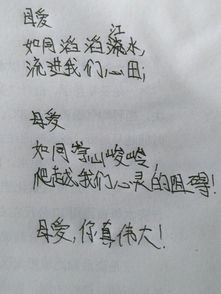 母爱
如同滔滔江水
流进我们心田;
母爱
如同崇山峻岭
爬越我们心灵的阻碍!
母爱,你真伟大!